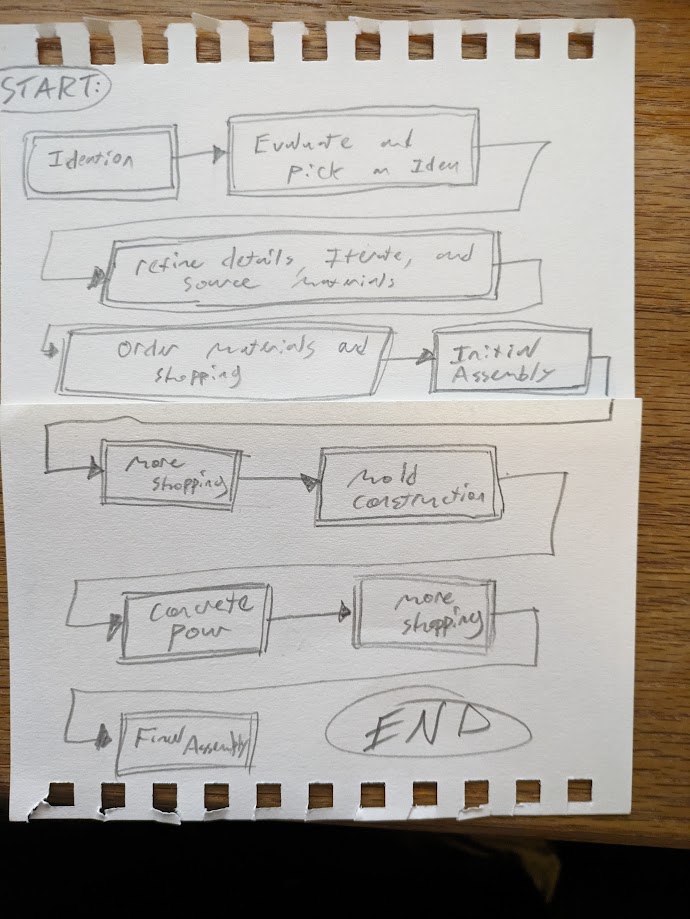 START:
Ideation
Evaluate and
Pick an Idea
refine details, Iterate, and
source materials
Order materials and
shopping
Initial
Assembly
More
shopping
Mold
construction
Concrete
Pour
More
shopping
Final Assembly
END